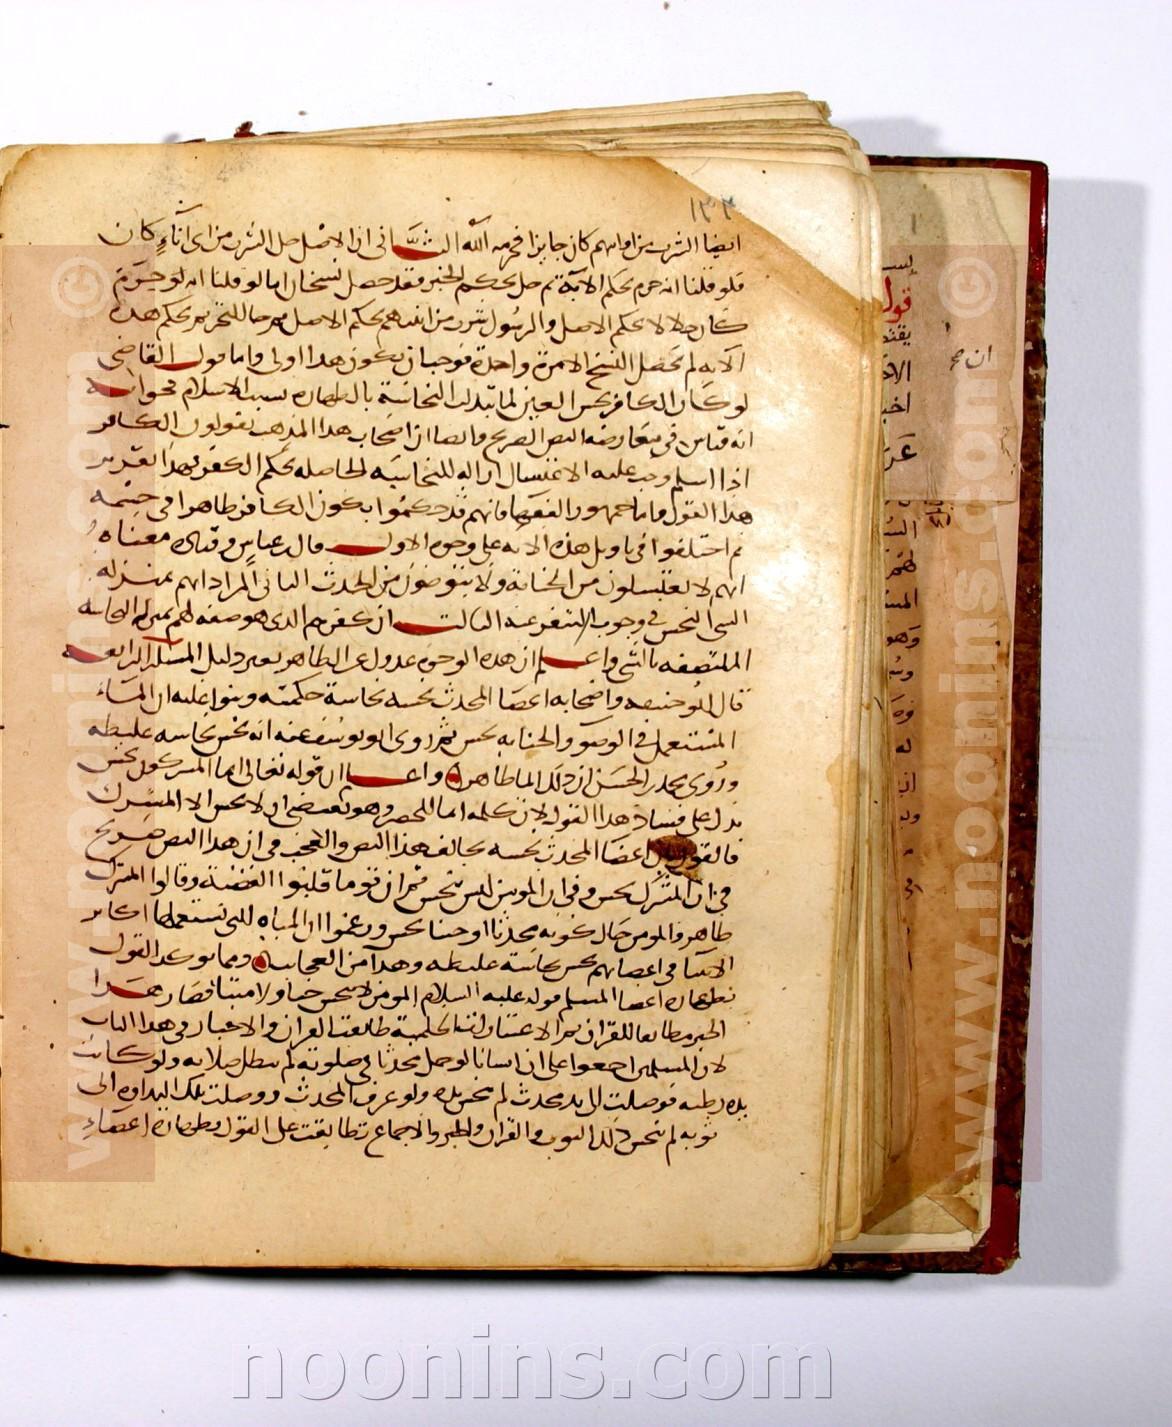 ١٣٢
ايضا الشرب من اوانيهم كان جايزا فحرمه الله الثانى ان الاصل حل الشرب من اى آناءٍ كان
فلو قلنا انه حرم بحكم الاية ثم حل بحكم الخبر فقد حصل نسخان اما لو قلنا انه
كان حلالا بحكم الاصل والرسول شرب من بحكم الاصل ثم جا التحريم بحكم هذه
الايه لم يحصل النسخ الا مرة واحدة فوجب ان يكون هذا اولى واما قول القاضى
لو كان الكافر نجس العين لما تبدلت النجاسة بالطهارة بسبب الاسلام فجوابه
انه قياس فى معارضه النص الصريح وايضا ان اصحاب هذا المذهب يقولون الكافر
اذا اسلم وجب عليه الاغتسال ازاله للنجاسة الحاصله بحكم الكفر فهذا تقرير
هذا القول واما جمهور الفقها فانهم قد حكموا بكون الكافر طاهرا فى جسمه
ثم اختلفوا فى تاويل هذه الايه على وجوه الاول قال عباس وقتاده معناه
انهم لا يغتسلون من الجنابة ولا يتوضون من الحدث الثانى المراد انهم بمنزله
الشى النجس فى وجوب التنفر عنه الثالث ان كفرهم الذى هو صفه لهم بمنزله النجاسه
الملتصقه بالشى واعلم ان هذه الوجوه عدول عن الظاهر بغير دليل المسلة الرابعه
قال ابو حنيفه واصحابه اعضا المحدث نجسه نجاسة حكميه وبنوا عليه ان الماء
المستعمل فى الوضو والجنابه نجس ثم روى ابو يوسف عنه انه نجس نجاسه غليظه
وروى محمد بن الحسن ان ذلك الما طاهر واعلم ان قوله تعالى انما المشركون نجس
يدل على فساد هذا القول لان كلمه انما للحصر وهو يقتضى ان لا نجس الا المشرك
فالقول بان اعضا المحدث نجسه يخالف هذا النص والعجب فى ان هذا النص صريح
فى ان المشرك نجس وفى ان المومن ليس بنجس ثم ان قوما قلبوا القضية وقالوا المشرك
طاهر والمومن حال كونه محدثا او جنبا نجس وزعموا ان المياه التى تستعملها اكابر
الانبيا فى اعضايهم نجس نجاسة غليظه وهذا من العجايب ومما يوكد القول
بطهارة اعضا المسلم قوله عليه السلام المومن لا ينجس حيا ولا ميتا فصار هذا
الخبر مطابقا للقران ثم الاعتبارات الحكمية طابقت القران والاخبار فى هذا الباب
لان المسلمين اجمعوا على ان انسانا لو حمل محدثا فى صلوته لم تبطل صلاته ولو كانت
يده رطبه فوصلت الى يد محدث لم تنجس يده ولو عرق المحدث ووصلت تلك النداوه الى
ثوبه لم ينجس ذلك الثوب والقران والخبر والاجماع تطابقت على القول بطهارة اعضاء
ان صح
قوله
www.noonins.com ©
www.noonins.com ©
noonins.com